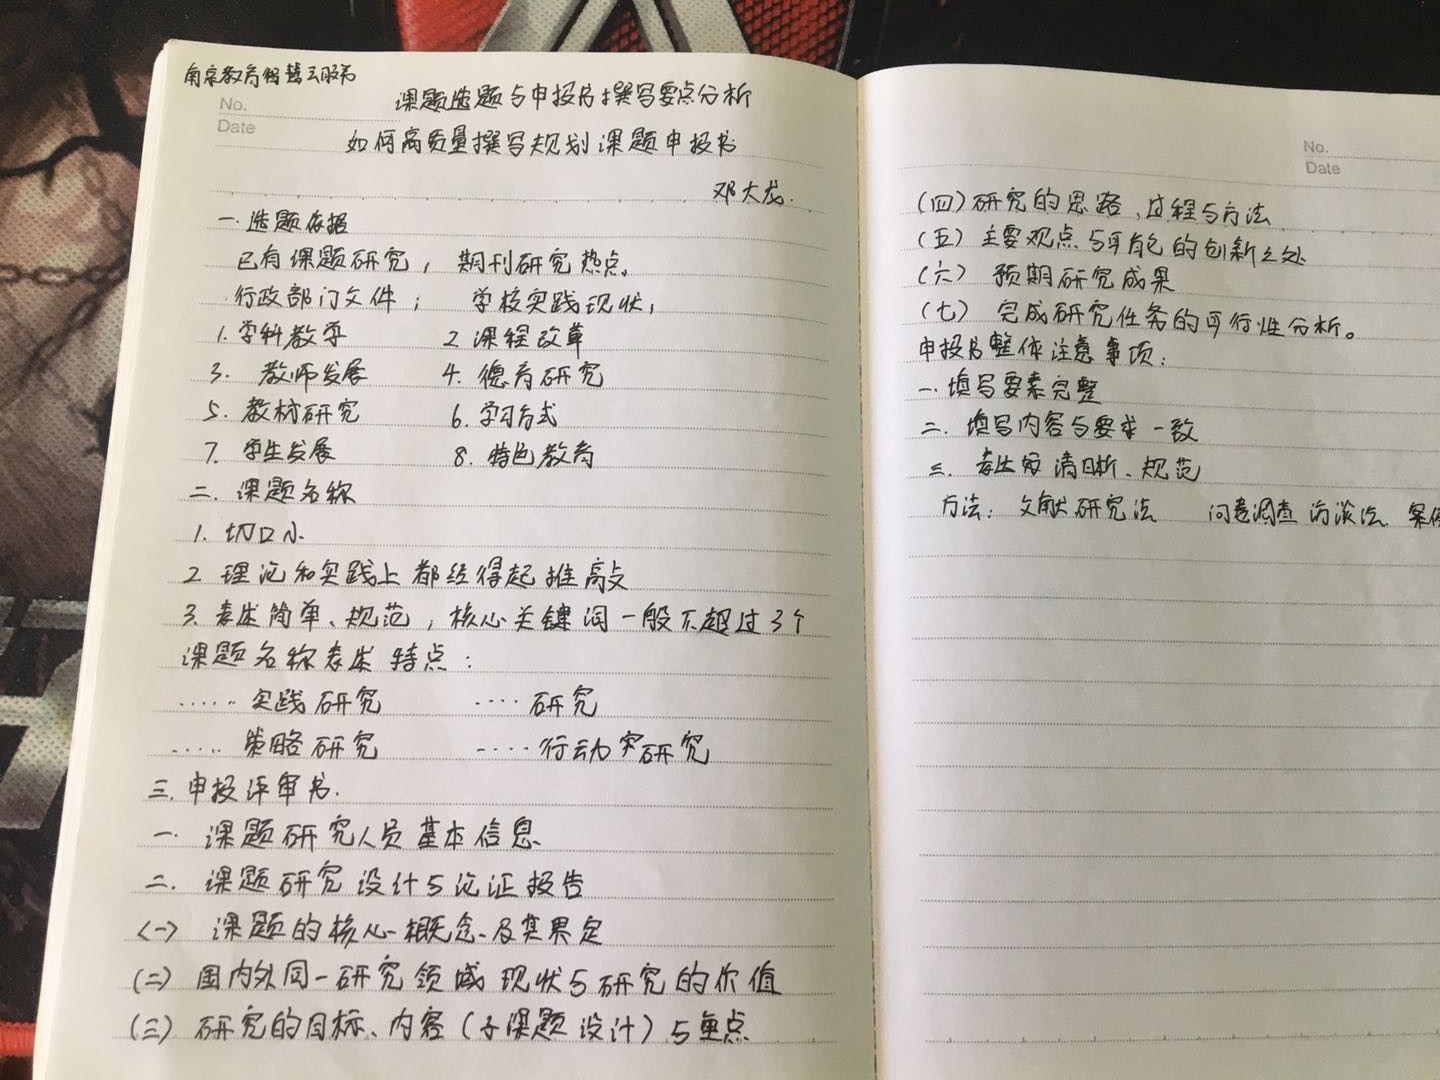 南京教育智慧云服务
No.
Date
课题选题与申报书撰写要点分析
如何高质量撰写规划课题申报书
邓大龙.
一.选题依据
已有课题研究， 期刊研究热点，
行政部门文件； 学校实践现状，
1.学科教学 2 课程改革
3. 教师发展 4. 德育研究
5. 教材研究 6. 学习方式
7. 学生发展 8. 特色教育
二. 课题名称
1. 切口小
2 理论和实践上都经得起推敲
3. 表述简单、规范，核心关键词一般不超过3个
课题名称表述特点：
······实践研究 ····研究
·····策略研究 ····行动研究
三.申报评审书.
一. 课题研究人员基本信息
二. 课题研究设计与论证报告
(一) 课题的核心概念及其界定
(二) 国内外同一研究领域现状与研究的价值
(三) 研究的目标、内容（子课题设计）与重点
No.
Date
(四)研究的思路、过程与方法
(五) 主要观点与可能的创新之处
(六) 预期研究成果
(七) 完成研究任务的可行性分析。
申报书整体注意事项：
一.填写要素完整
二. 填写内容与要求一致
三. 表述 清晰、规范
方法： 文献研究法 问卷调查 访谈法. 案例